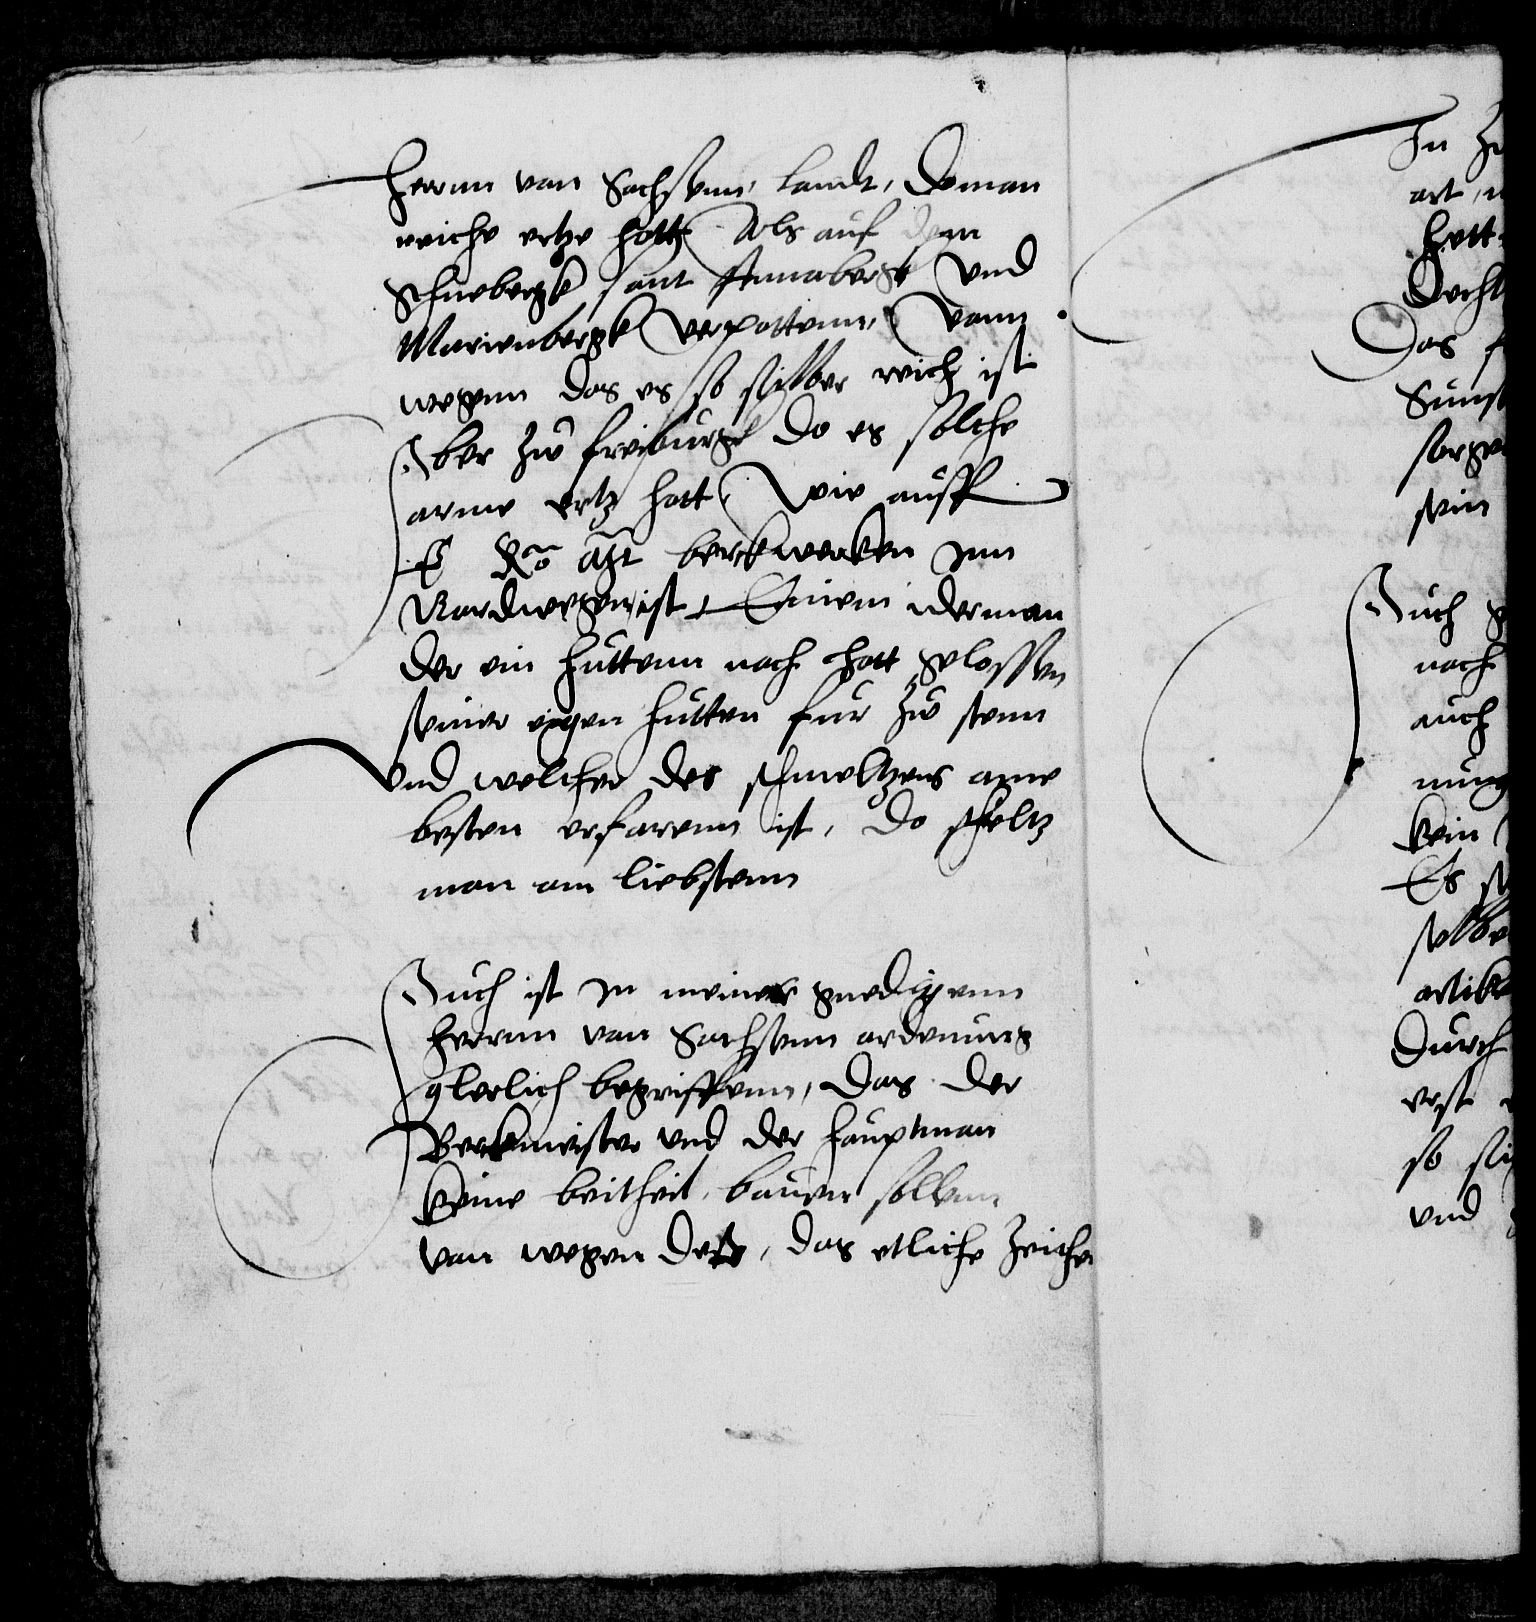 herrnn van Sachssenn, landt, Do man
reiche ertze hott Als auf dem
Schnebergk sant Annabergk Und
Marienbergk verpottenn, Vann
wegenn das es so silber reich ist
Aber zw freiburgk do es solche
arme ertz hatt, Wie auff
E K M berckwercken Inn
Nardwegen ist, Einem iderman
der ein huttenn nach hatt gelossen
seiner eigen hutten fur zw stenn
Und welcher des schmeltzens ame
besten erfarenn ist, Do schmeltz
man am liebstenn
Auch ist In meiner gnedigenn
herrnn van Sachssenn ardenung
glerlich begriffenn, das der
Berckmeister und der hauptman
keine beitheil bauen sollenn
van wegen des, das etliche Zeichen
In
art,
hett
Decht
Das
Sunst
sorge
sein
Auch
nach
auch
nung
kein
Es
selbe
artik
Durch
erst
so
und